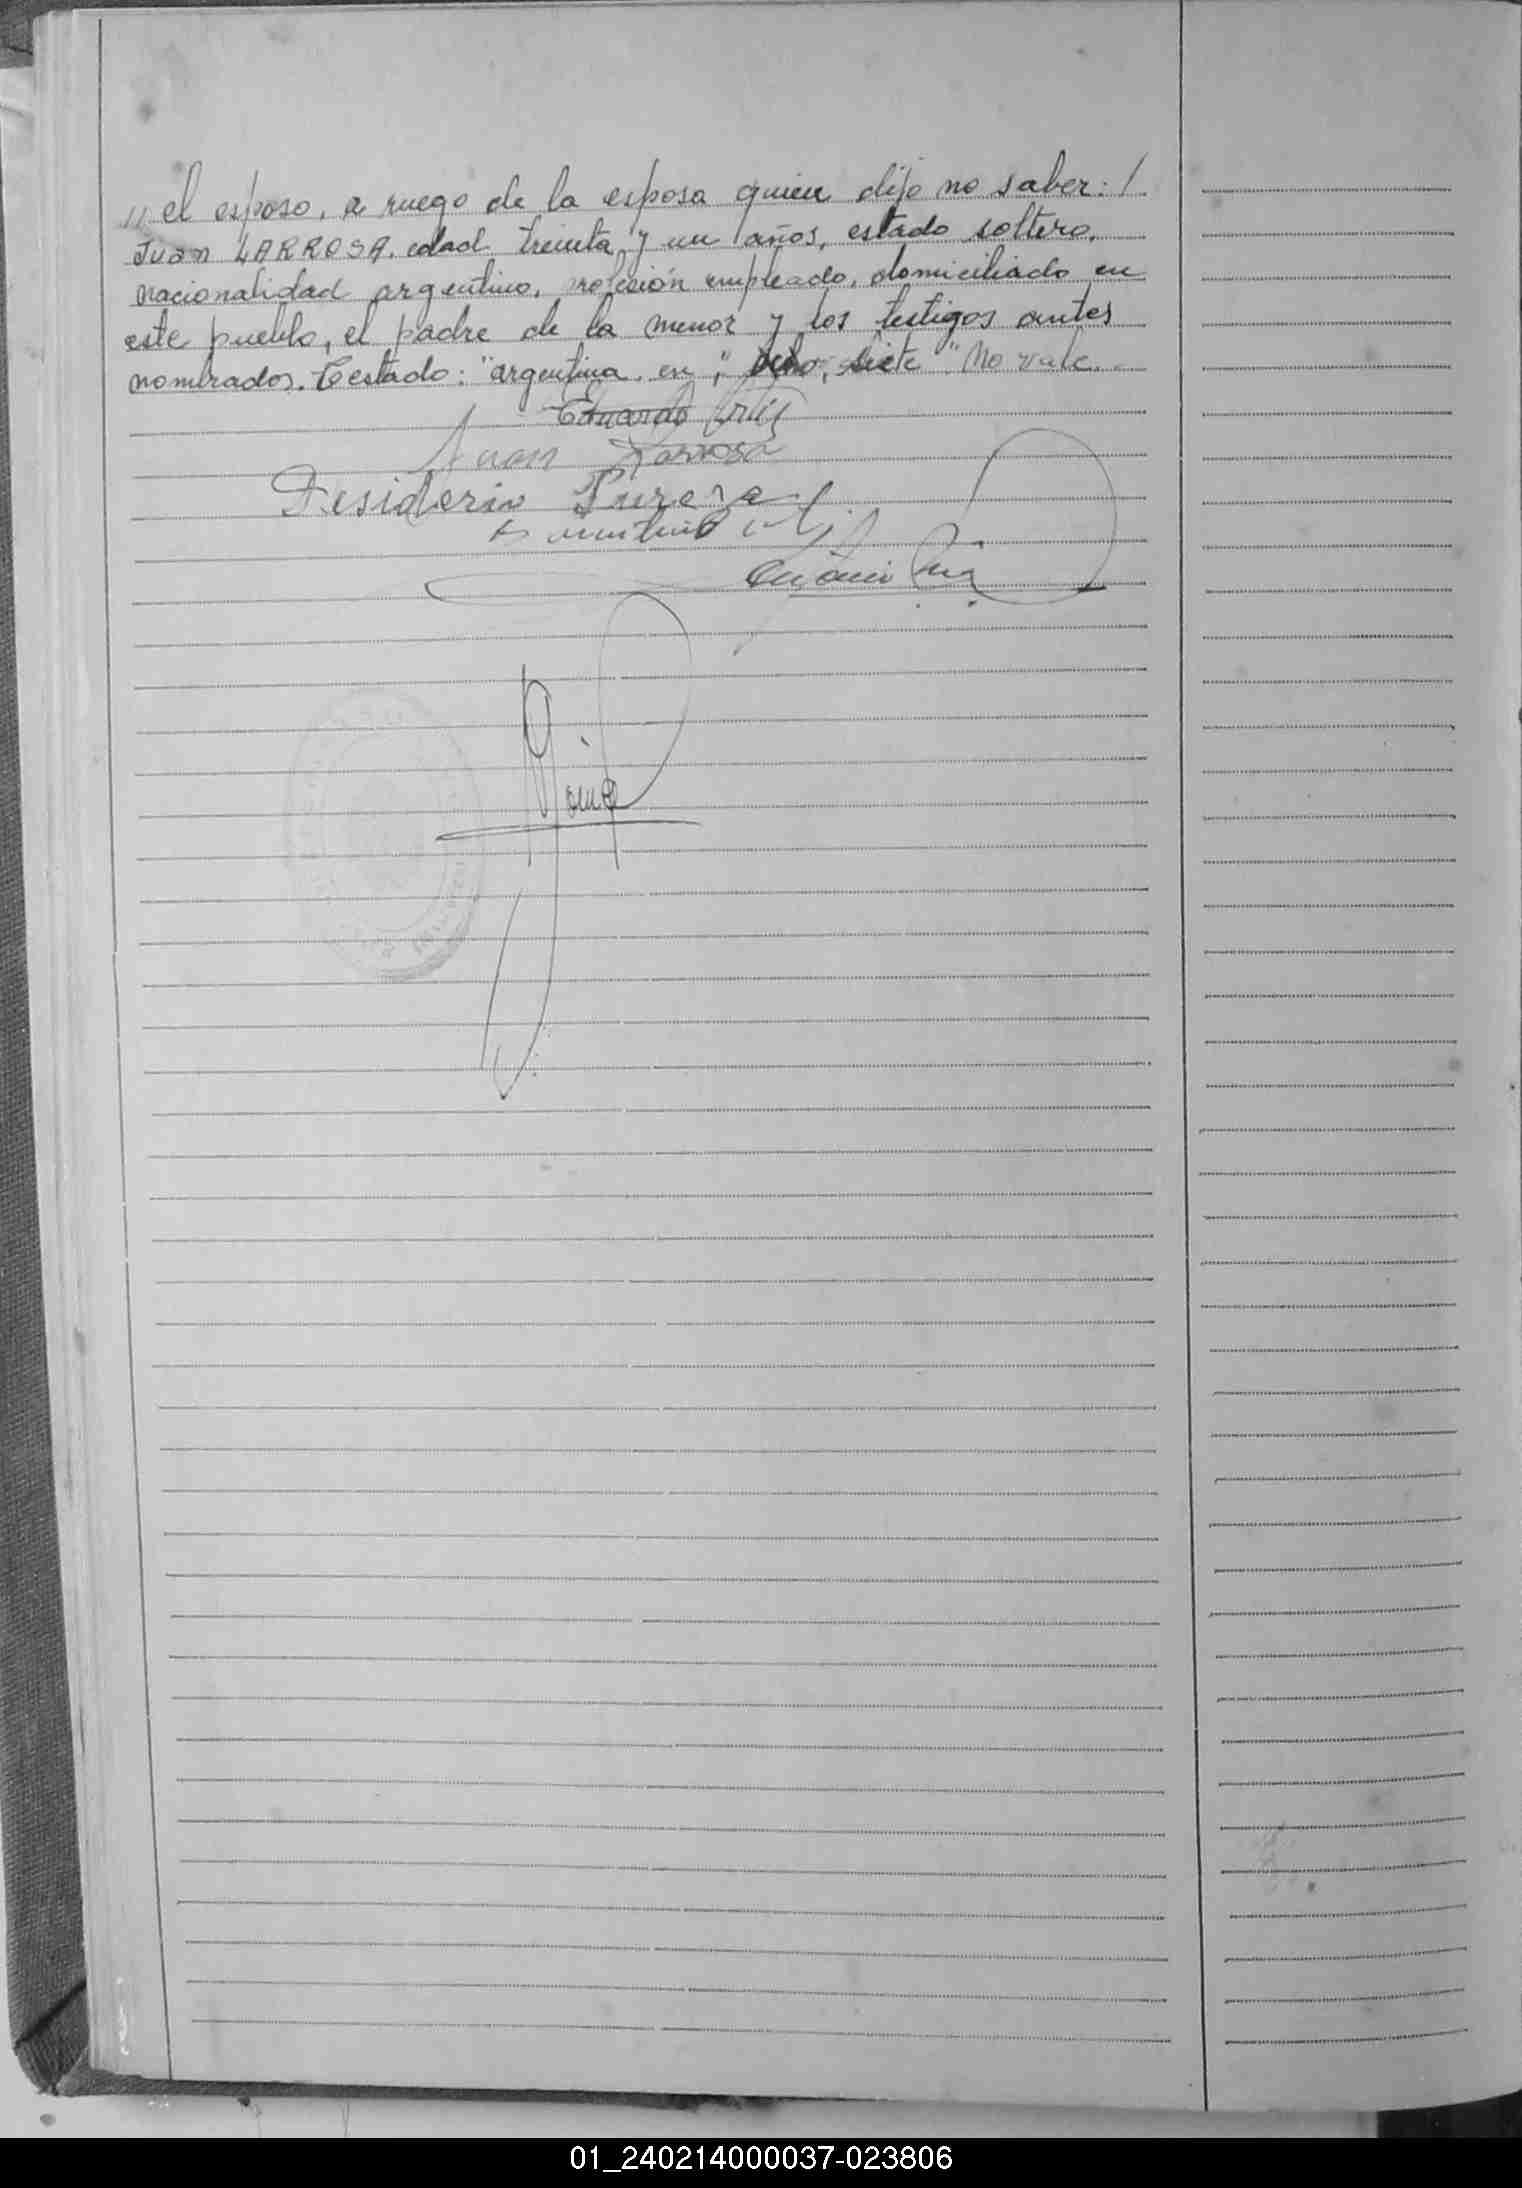 // el esposo, a ruego de la esposa quien dijo no saber: /
Juan LARROSA, edad treinta y un años, estado soltero,
nacionalidad argentino, profesión empleado, domiciliado en
este pueblo, el padre de la menor y los testigos antes
nombrados. Testado: "argentina, en", siete" No vale.
Eduardo Ortiz
Juan Larrosa
Desiderio Pureza
01_240214000037-023806